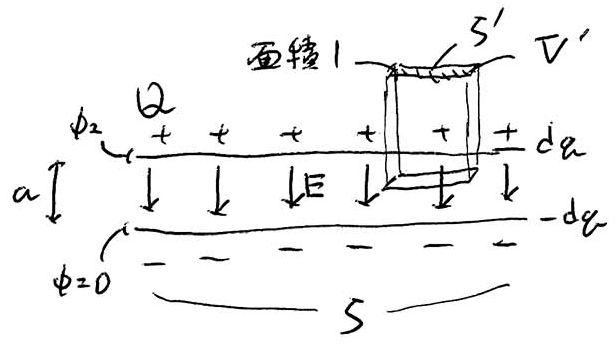 面積 1
S'
V'
Q
+ + + + + +
φ2
dq
a
E
-dq
φ=0
- - - - - -
S